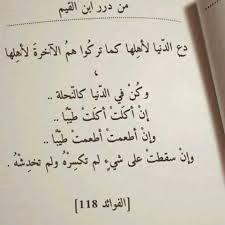 من درر ابن القيم
دع الدّنيا لأهلها كما تركُوا همُ الآخرةَ لأهلها
،
وكُنْ في الدّنيا كالنّحلة ..
إنْ أكلتْ أكلتْ طيّبًا ..
وإنْ أطعمتْ أطعمتْ طيّبًا ..
وإنْ سقطتْ على شيءٍ لم تكسِرْهُ ولم تخدِشْهُ .
[الفوائد 118]